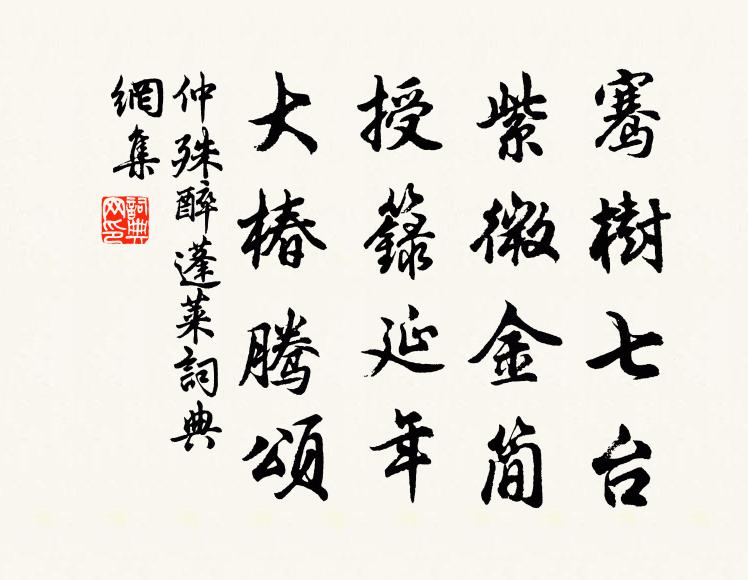 骞樹七台
紫微金简
授籙延年
大椿騰頌
仲殊醉蓬莱詞典
網集
詞典
网印